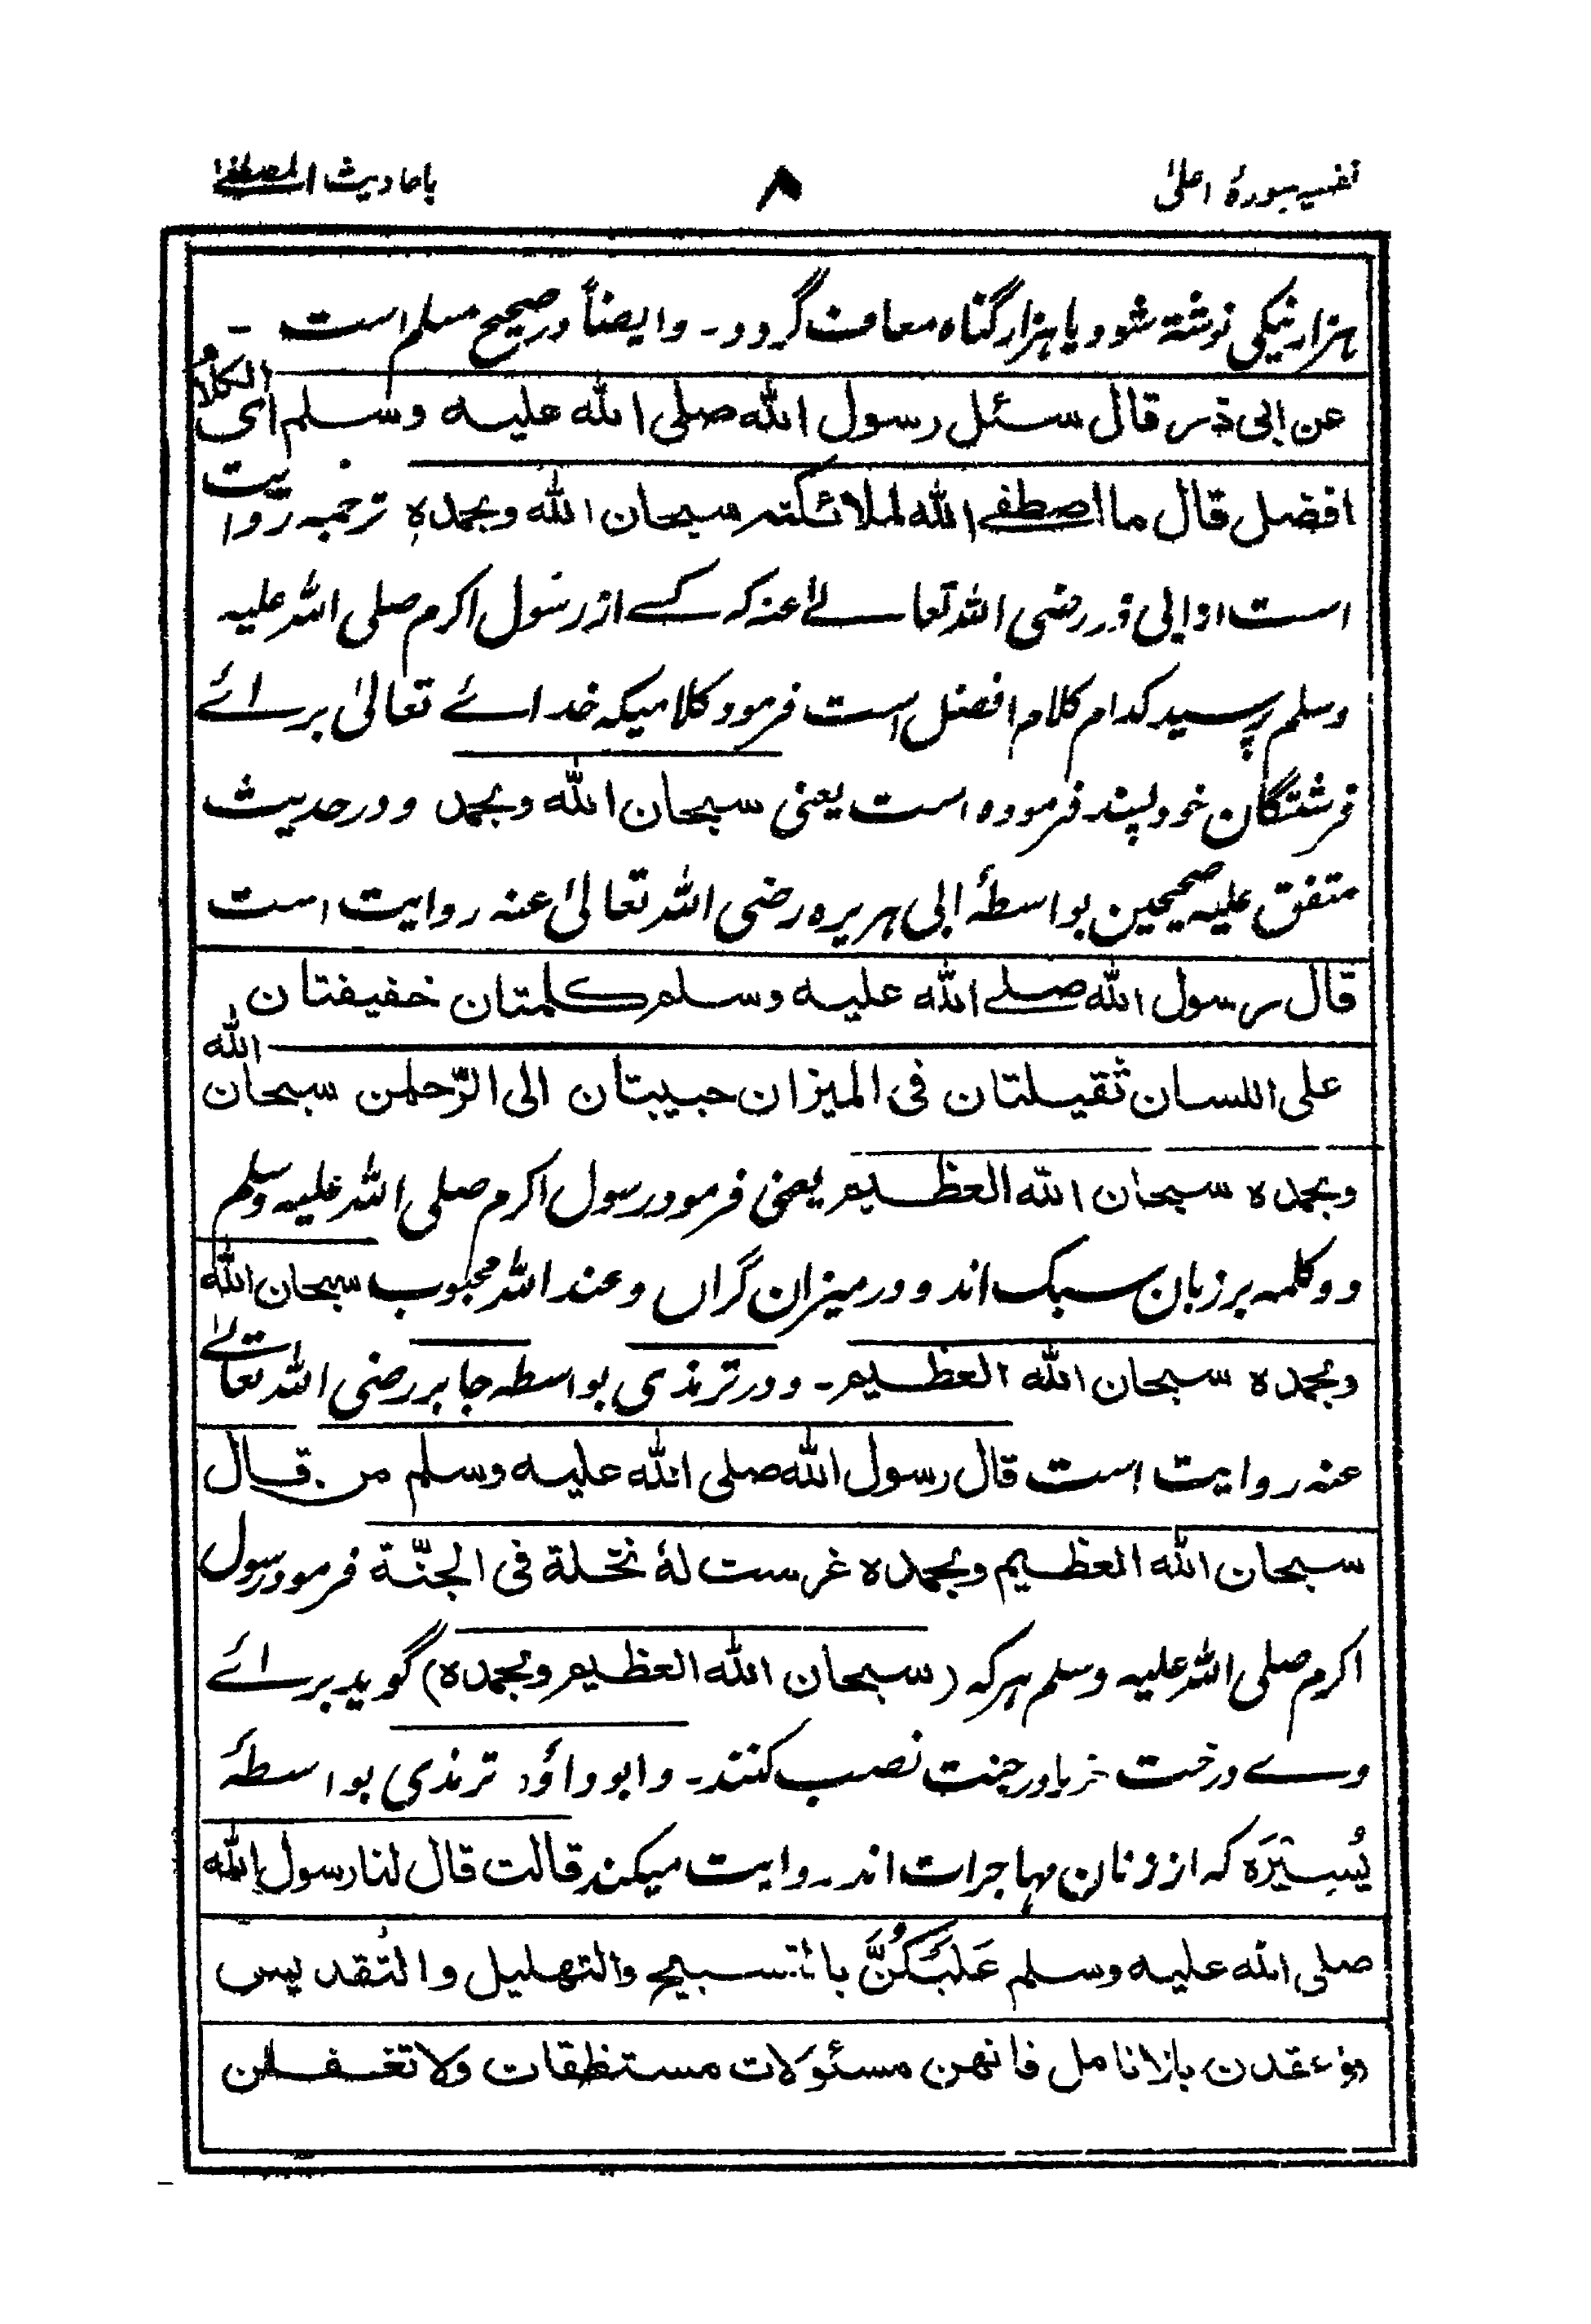 تفسیر سورۂ اعلیٰ ۸ باحادیث المصطفےٰ
ہزار نیکی نوشتہ شود یا ہزار گناہ معاف گردد۔ وایضاً در صحیح مسلم است ۔
عن ابی ذر قال سئل رسول الله صلی الله علیه وسلم ای الکلام
افضل قال ما اصطفے الله لملائکته سبحان الله وبحمدہٖ ترجمہ روایت
است از ابی ذر رضی اللہ تعالےٰ عنہ کہ کسے از رسول اکرم صلی اللہ علیہ
وسلم پرسید کدام کلام افضل است فرمود کلامیکہ خدائے تعالیٰ برائے
فرشتگان خود پسند فرمودہ است یعنی سبحان الله وبحمد و در حدیث
متفق علیہ صحیحین بواسطۂ ابی ہریرہ رضی اللہ تعالیٰ عنہ روایت است
قال رسول الله صلے الله علیه وسلم کلمتان خفیفتان
علی اللسان ثقیلتان فی المیزان حبیبتان الی الرّحمٰن سبحان الله
وبحمدہ سبحان الله العظیم یعنی فرمود رسول اکرم صلی اللہ علیہ وسلم
دو کلمہ بر زبان سبک اند و در میزان گراں و عند اللہ محبوب سبحان الله
وبحمدہ سبحان الله العظیم۔ و در ترمذی بواسطہ جابر رضی اللہ تعالےٰ
عنہ روایت است قال رسول الله صلی الله علیه وسلم من قال
سبحان الله العظیم وبحمدہ غرست لهٗ نخلة فی الجنّة فرمود رسول
اکرم صلی اللہ علیہ وسلم ہر کہ (سبحان الله العظیم وبحمدہ) گوید برائے
وے درخت خرما در جنت نصب کنند۔ و ابوداؤد ترمذی بواسطۂ
یُسَیْرَہ کہ از زنان مہاجرات اند روایت میکند قالت قال لنا رسول الله
صلی الله علیه وسلم عَلَیْکُنَّ بالتسبیح والتهلیل والتقدیس
واعقدن بالانامل فانهن مسئولات مستنطقات ولا تغفلن